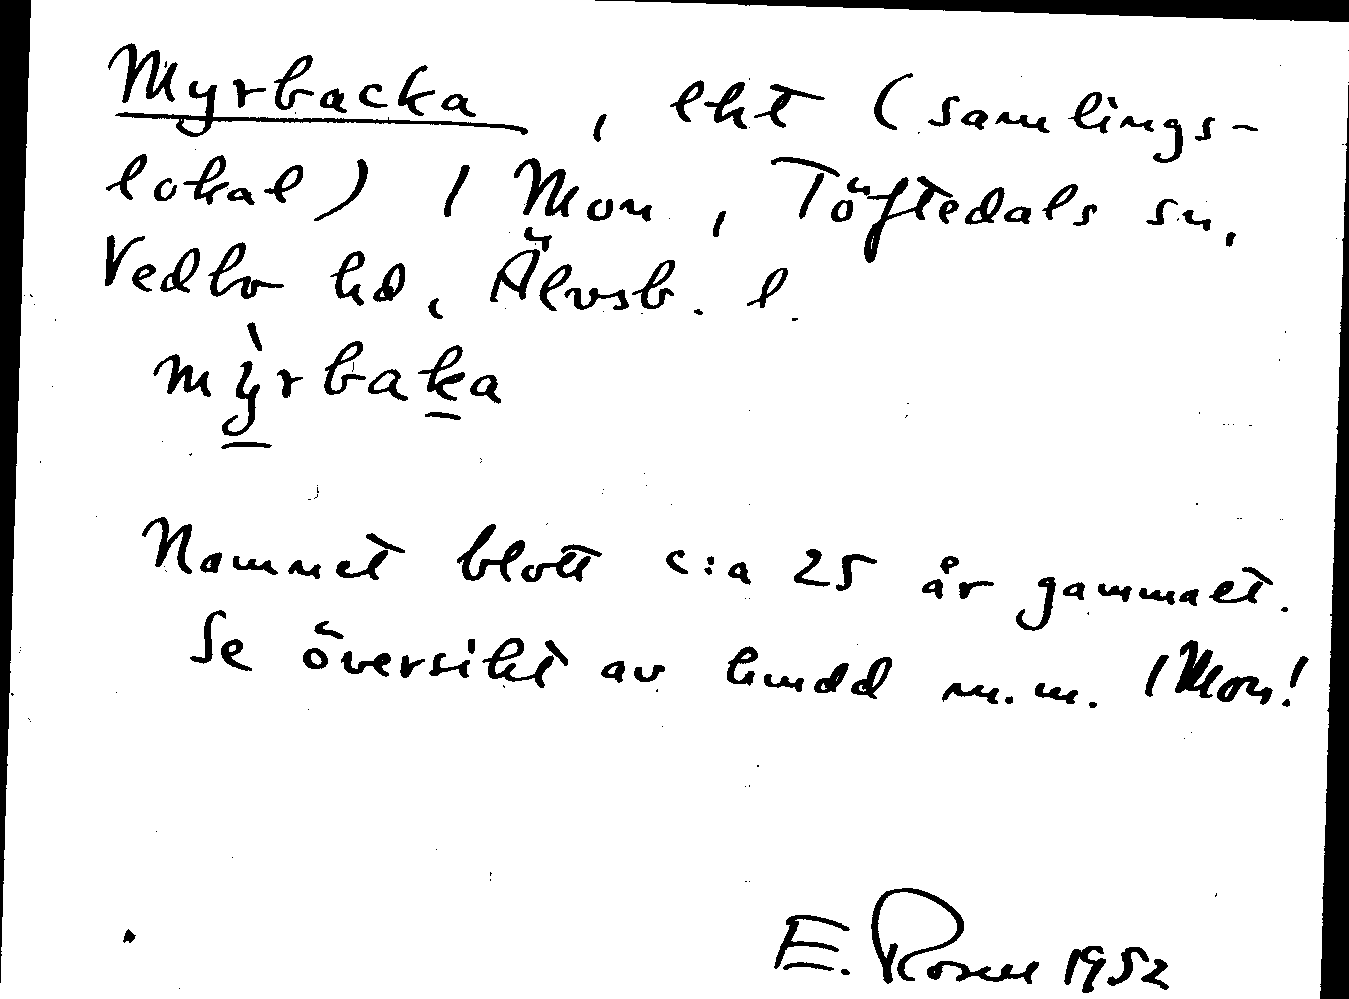 Myrbacka, lht (samlings-
lokal) / Mon, Töftedals sn,
Vedbo hd, Älvsb. l.
mỳrbaka
Namnet blott c:a 25 år gammalt.
Se översikt av hmdd m.m. / Mon!
E. Rosell 1952